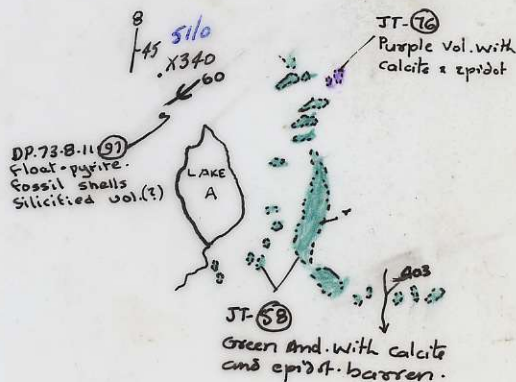 8
45
5110
X340
60
JT-76
Purple Vol. with
calcite & epidot
DP.73-8-11-97
Float-pyrite.
fossil shells
Silicified vol.(?)
LAKE
A
403
JT-58
Green And. with calcite
and epidot. barren.